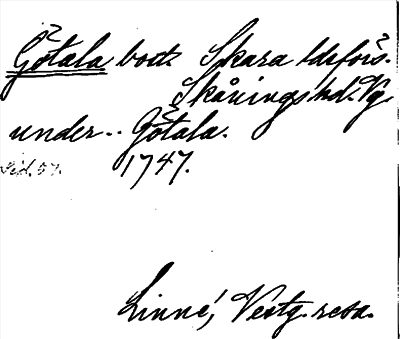 Götala bost. Skara ldsförs.
Skånings hd. Vg.
under.. Götala.
Sid. 57. 1747.
Linné, Vestg. resa.